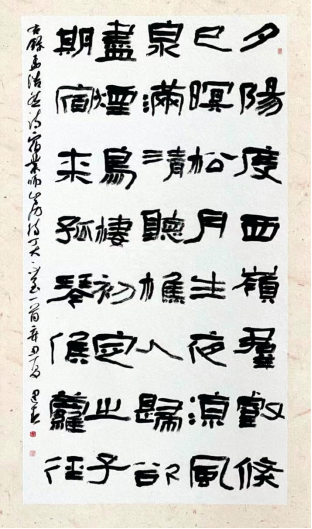 夕陽度西嶺羣壑倏
已暝松月生夜涼風
泉滿清聽樵人歸欲
盡煙鳥棲初定之子
期宿來孤琴候蘿徑
孟浩然诗宿業師山房待丁大不至一首